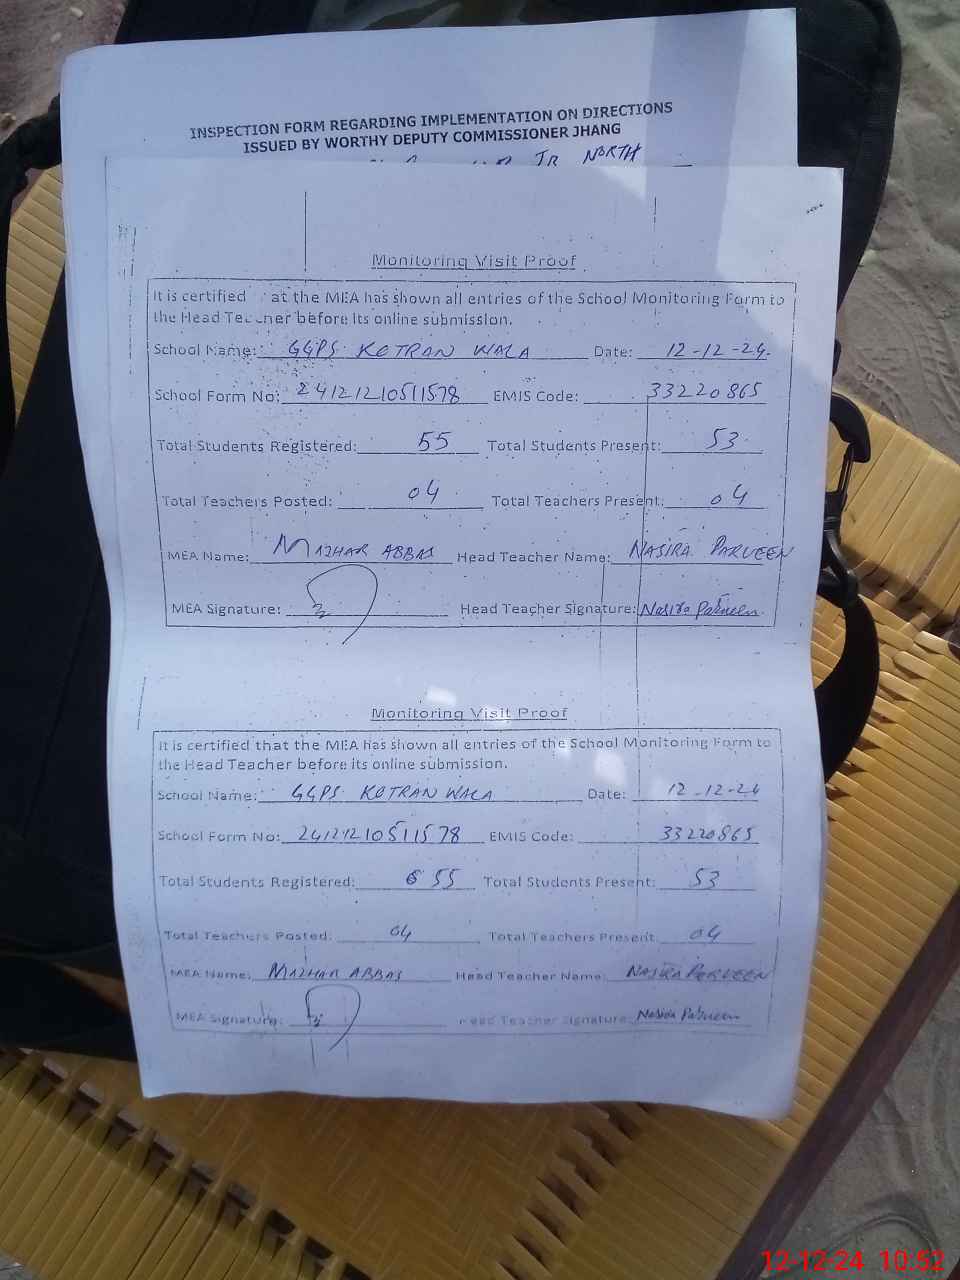 INSPECTION FORM REGARDING IMPLEMENTATION ON DIRECTIONS
ISSUED BY WORTHY DEPUTY COMMISSIONER JHANG
JR NORTH
Monitoring Visit Proof
It is certified at the MEA has shown all entries of the School Monitoring Form to
the Head Teacher before its online submission.
School Name: GGPS KOTRAN WALA Date: 12-12-24.
School Form No: 24121210511578 EMIS Code: 33220865
Total Students Registered: 55 Total Students Present: 53
Total Teachers Posted: 04 Total Teachers Present: 04
MEA Name: MAZHAR ABBAS Head Teacher Name: NASIRA PARVEEN
MEA Signature: Head Teacher Signature: Nasira Parveen
Monitoring Visit Proof
It is certified that the MEA has shown all entries of the School Monitoring Form to
the Head Teacher before its online submission.
School Name: GGPS KOTRAN WALA Date: 12-12-24
School Form No: 24121210511578 EMIS Code: 33220865
Total Students Registered: 55 Total Students Present: 53
Total Teachers Posted: 04 Total Teachers Present: 04
MEA Name: MAZHAR ABBAS Head Teacher Name: NASIRA PERVEEN
MEA Signature: Head Teacher Signature: Nasira Parveen
12-12-24 10:52